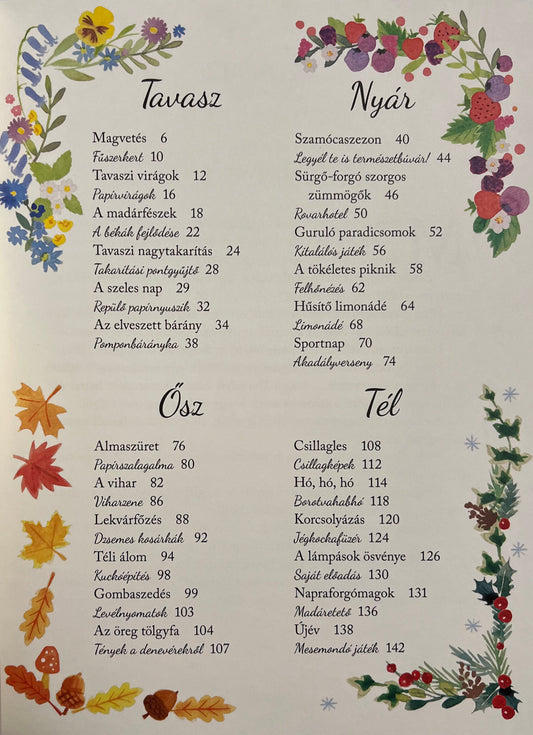 Tavasz
Magvetés 6
Fűszerkert 10
Tavaszi virágok 12
Papírvirágok 16
A madárfészek 18
A békák fejlődése 22
Tavaszi nagytakarítás 24
Takarítási pontgyűjtő 28
A szeles nap 29
Repülő papírnyuszik 32
Az elveszett bárány 34
Pomponbárányka 38
Nyár
Szamócaszezon 40
Legyél te is természetbúvár! 44
Sürgő-forgó szorgos
zümmögők 46
Rovarhotel 50
Guruló paradicsomok 52
Kitalálós játék 56
A tökéletes piknik 58
Felhőnézés 62
Hűsítő limonádé 64
Limonádé 68
Sportnap 70
Akadályverseny 74
Ősz
Almaszüret 76
Papírszalagalma 80
A vihar 82
Viharzene 86
Lekvárfőzés 88
Dzsemes kosárkák 92
Téli álom 94
Kuckóépítés 98
Gombaszedés 99
Levélnyomatok 103
Az öreg tölgyfa 104
Tények a denevérekről 107
Tél
Csillagles 108
Csillagképek 112
Hó, hó, hó 114
Borotvahabhó 118
Korcsolyázás 120
Jégkockafüzér 124
A lámpások ösvénye 126
Saját előadás 130
Napraforgómagok 131
Madáretető 136
Újév 138
Mesemondó játék 142